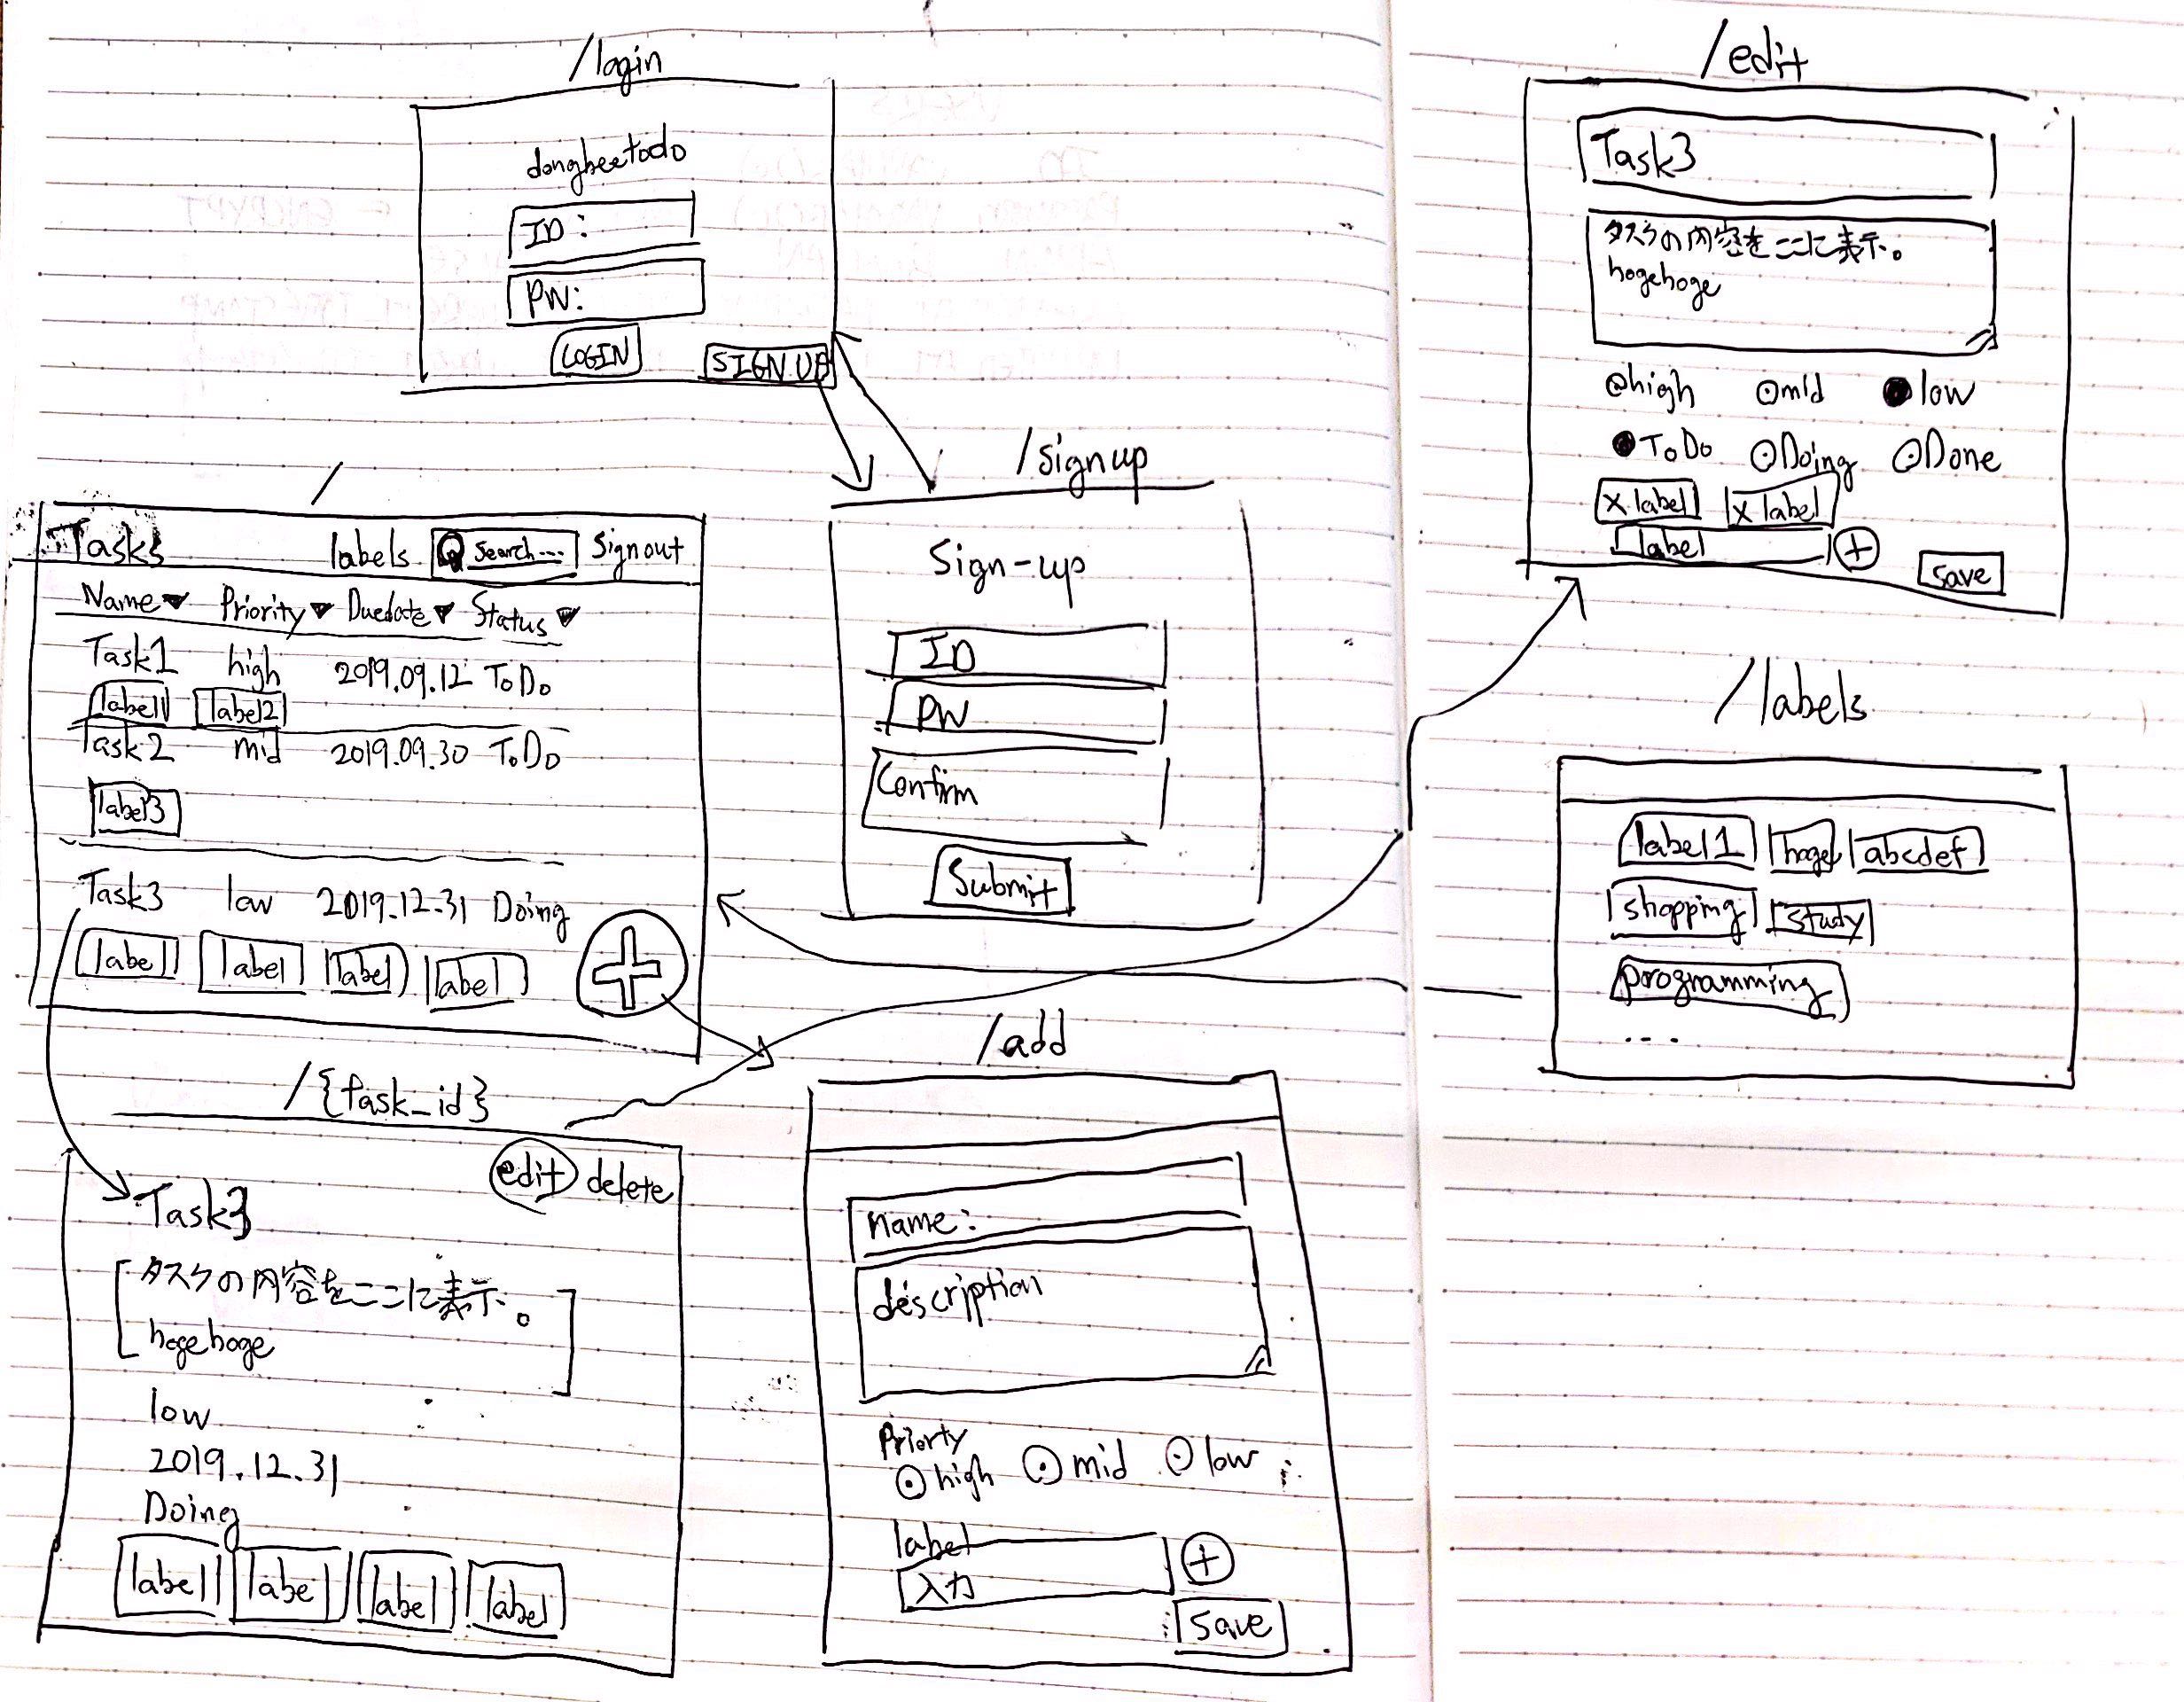 /login
dongbeetodo
ID:
PW:
LOGIN
SIGN UP
/
Tasks
labels
Search...
Signout
Name▼ Priority▼ Duedate▼ Status▼
Task1 high 2019.09.12 ToDo
label1 label2
Task2 mid 2019.09.30 ToDo
label3
Task3 low 2019.12.31 Doing
label label label label
+
/signup
Sign-up
ID
PW
Confirm
Submit
/{task_id}
edit delete
Task3
タスクの内容をここに表示。
hogehoge
low
2019.12.31
Doing
label label label label
/add
name:
description
Priorty
high mid low
label
入力 +
Save
/edit
Task3
タスクの内容をここに表示。
hogehoge
high mid low
ToDo Doing Done
x label x label
label +
Save
/labels
label1 hoge abcdef
shopping study
programming
...